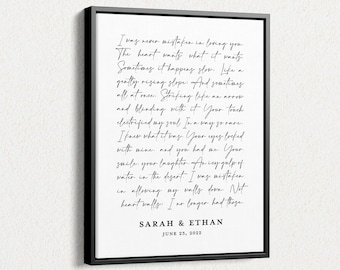 I was never mistaken in loving you
The heart wants what it wants
Sometimes it happens slow. Like a
gently rising slope. And sometimes
all at once. Striking like an arrow
and blending with it. Your touch
electrified my soul. In a way so rare
I knew what it was. Your eyes locked
with mine and you had me. Your
smile, your laughter. An icy gulp of
water in the desert. I was mistaken
in allowing my walls down. Not
heart walls. I no longer had those
SARAH & ETHAN
JUNE 25, 2022